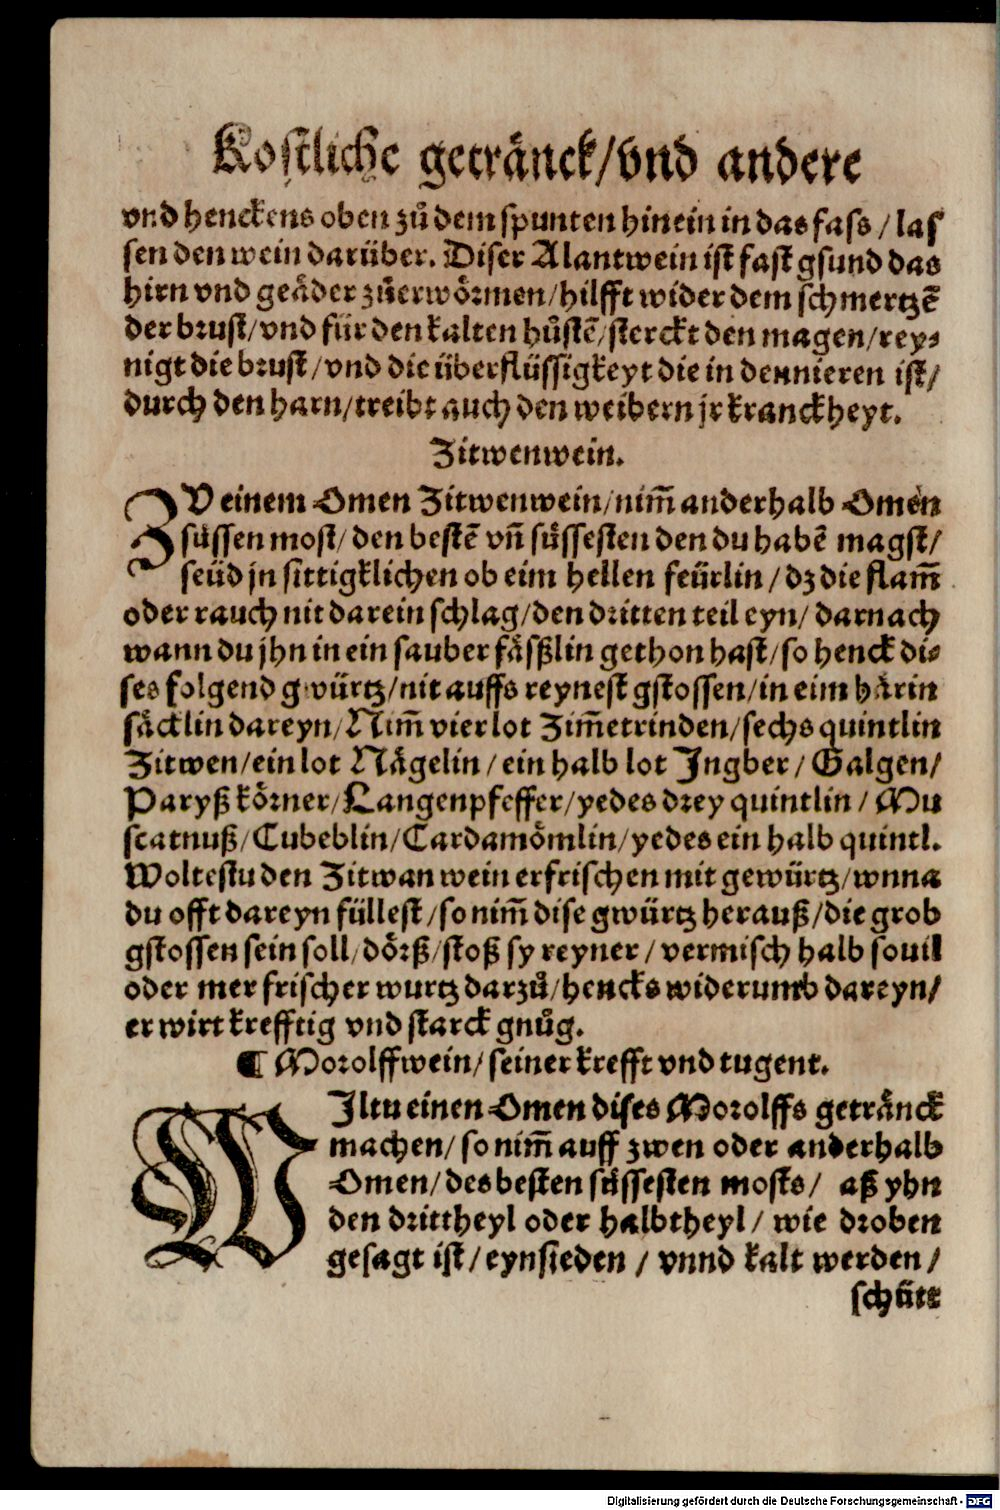 Kostliche getränck/vnd andere
vnd henckens oben zů dem spunten hinein in das fass / las
sen den wein darüber. Diser Alantwein ist fast gsund das
hirn vnd geäder zůerwörmen/hilfft wider dem schmertzē
der brust/vnd für den kalten hůstē/sterckt den magen/rey⸗
nigt die brust/vnd die überflüssigkeyt die in den nieren ist/
durch den harn/treibt auch den weibern jr kranckheyt.
Zitwenwein.
ZV einem Omen Zitwenwein/nim̄ anderhalb Omen
süssen most/den bestē vñ süssesten den du habē magst/
seüd jn sittigklichen ob eim hellen feürlin / dz die flam̄
oder rauch nit darein schlag/den dritten teil eyn/ darnach
wann du jhn in ein sauber fäßlin gethon hast/so henck di⸗
ses folgend gwürtz/nit auffs reynest gstossen/in eim härin
säcklin dareyn/Nim̄ vier lot Zim̄etrinden/sechs quintlin
Zitwen/ein lot Nägelin/ein halb lot Jngber/Galgen/
Paryßkörner/Langenpfeffer/yedes drey quintlin / Mu
scatnuß/Cubeblin/Cardamömlin/yedes ein halb quintl.
Woltestu den Zitwan wein erfrischen mit gewürtz/wnna
du offt dareyn füllest/so nim̄ dise gwürtz herauß/die grob
gstossen sein soll/dörß/stoß sy reyner / vermisch halb souil
oder mer frischer wurtz darzů/hencks widerumb dareyn/
er wirt krefftig vnd starck gnůg.
¶ Morolffwein/seiner krefft vnd tugent.
WJltu einen Omen dises Morolffs getränck
machen/ so nim̄ auff zwen oder anderhalb
Omen/des besten süssesten mosts/ aß yhn
den drittheyl oder halbtheyl/ wie droben
gesagt ist/eynsieden / vnnd kalt werden/
schütt
Digitalisierung gefördert durch die Deutsche Forschungsgemeinschaft - DFG